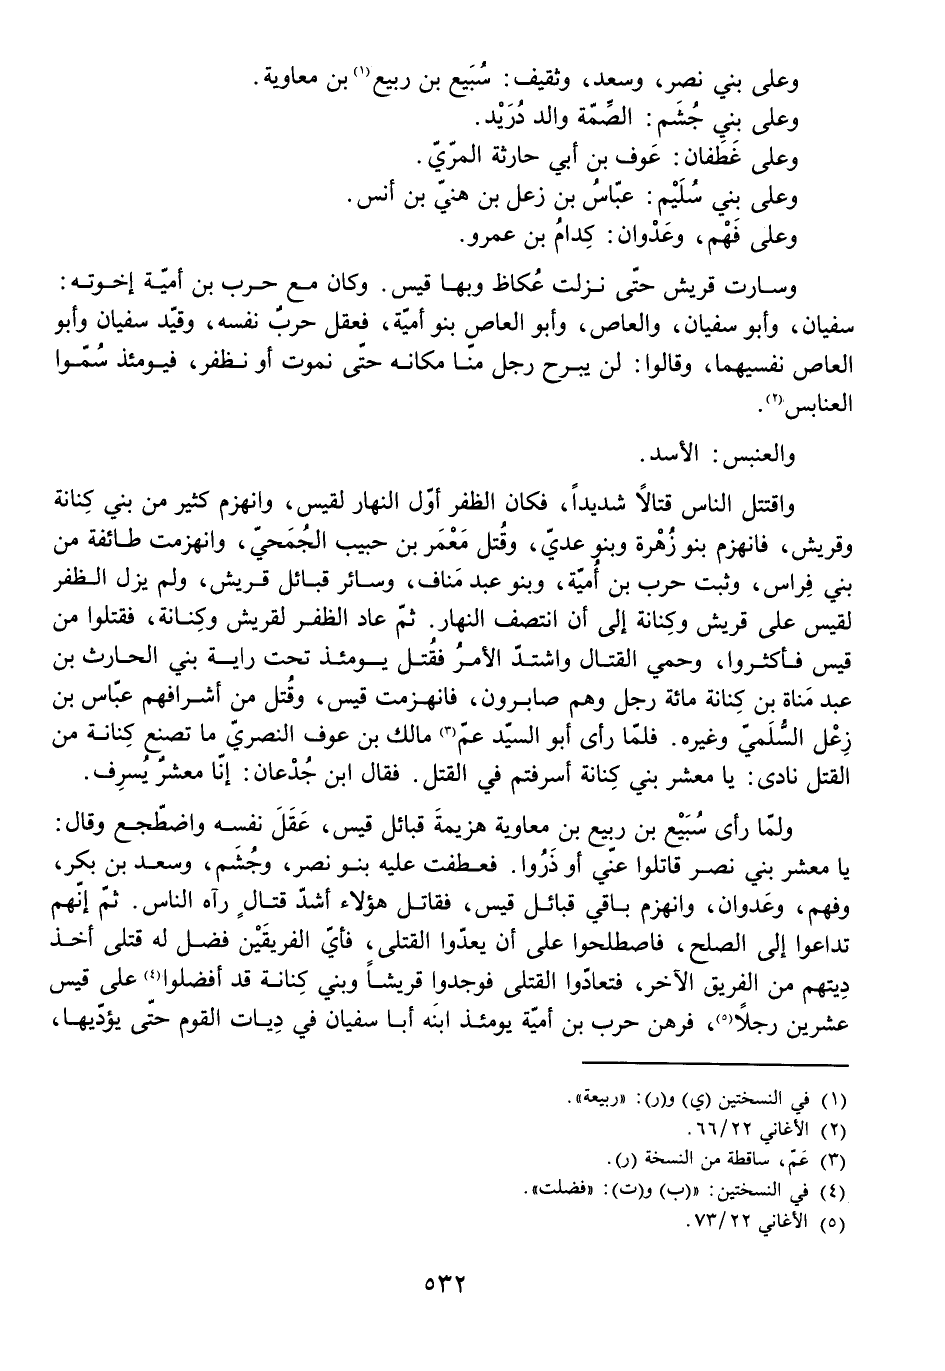 وعلى بني نصر، وسعد، وثقيف: سُبَيع بن ربيع(١) بن معاوية.
وعلى بني جُشَم: الصِّمّة والد دُرَيْد.
وعلى غَطَفان: عَوف بن أبي حارثة المرّيّ.
وعلى بني سُلَيْم: عبّاسُ بن زعل بن هنيّ بن أنس.
وعلى فَهْم، وعَدْوان: كِدامُ بن عمرو.
وسارت قريش حتّى نزلت عُكاظ وبها قيس. وكان مع حرب بن أميّة إخوته:
سفيان، وأبو سفيان، والعاص، وأبو العاص بنو أميّة، فعقل حربٌ نفسه، وقيّد سفيان وأبو
العاص نفسيهما، وقالوا: لن يبرح رجل منّا مكانه حتّى نموت أو نظفر، فيومئذ سُمّوا
العنابس(٢).
والعنبس: الأسد.
واقتتل الناس قتالاً شديداً، فكان الظفر أوّل النهار لقيس، وانهزم كثير من بني كِنانة
وقريش، فانهزم بنو زُهْرة وبنو عديّ، وقُتل مَعْمَر بن حبيب الجُمَحيّ، وانهزمت طائفة من
بني فِراس، وثبت حرب بن أُميّة، وبنو عبد مَناف، وسائر قبائل قريش، ولم يزل الظفر
لقيس على قريش وكِنانة إلى أن انتصف النهار. ثمّ عاد الظفر لقريش وكِنانة، فقتلوا من
قيس فأكثروا، وحمي القتال واشتدّ الأمرُ فقُتل يومئذ تحت راية بني الحارث بن
عبد مَناة بن كِنانة مائة رجل وهم صابرون، فانهزمت قيس، وقُتل من أشرافهم عبّاس بن
زِعْل السُّلَميّ وغيره. فلمّا رأى أبو السيّد عمّ(٣) مالك بن عوف النصريّ ما تصنع كِنانة من
القتل نادى: يا معشر بني كِنانة أسرفتم في القتل. فقال ابن جُدْعان: إنّا معشرٌ يُسرِف.
ولمّا رأى سُبَيْع بن ربيع بن معاوية هزيمةَ قبائل قيس، عَقَلَ نفسه واضطّجع وقال:
يا معشر بني نصر قاتلوا عنّي أو ذَرُوا. فعطفت عليه بنو نصر، وجُشَم، وسعد بن بكر،
وفهم، وعَدوان، وانهزم باقي قبائل قيس، فقاتل هؤلاء أشدّ قتالٍ رآه الناس. ثمّ إنّهم
تداعوا إلى الصلح، فاصطلحوا على أن يعدّوا القتلى، فأيّ الفريقَيْن فضل له قتلى أخذ
دِيتهم من الفريق الآخر، فتعادّوا القتلى فوجدوا قريشاً وبني كِنانة قد أفضلوا(٤) على قيس
عشرين رجلاً(٥)، فرهن حرب بن أميّة يومئذ ابنَه أبا سفيان في دِيات القوم حتّى يؤدّيها،
(١) في النسختين (ي) و(ر): «ربيعة».
(٢) الأغاني ٦٦/٢٢.
(٣) عَمّ، ساقطة من النسخة (ر).
(٤) في النسختين: «(ب) و(ت): «فضلت».
(٥) الأغاني ٧٣/٢٢.
٥٣٢